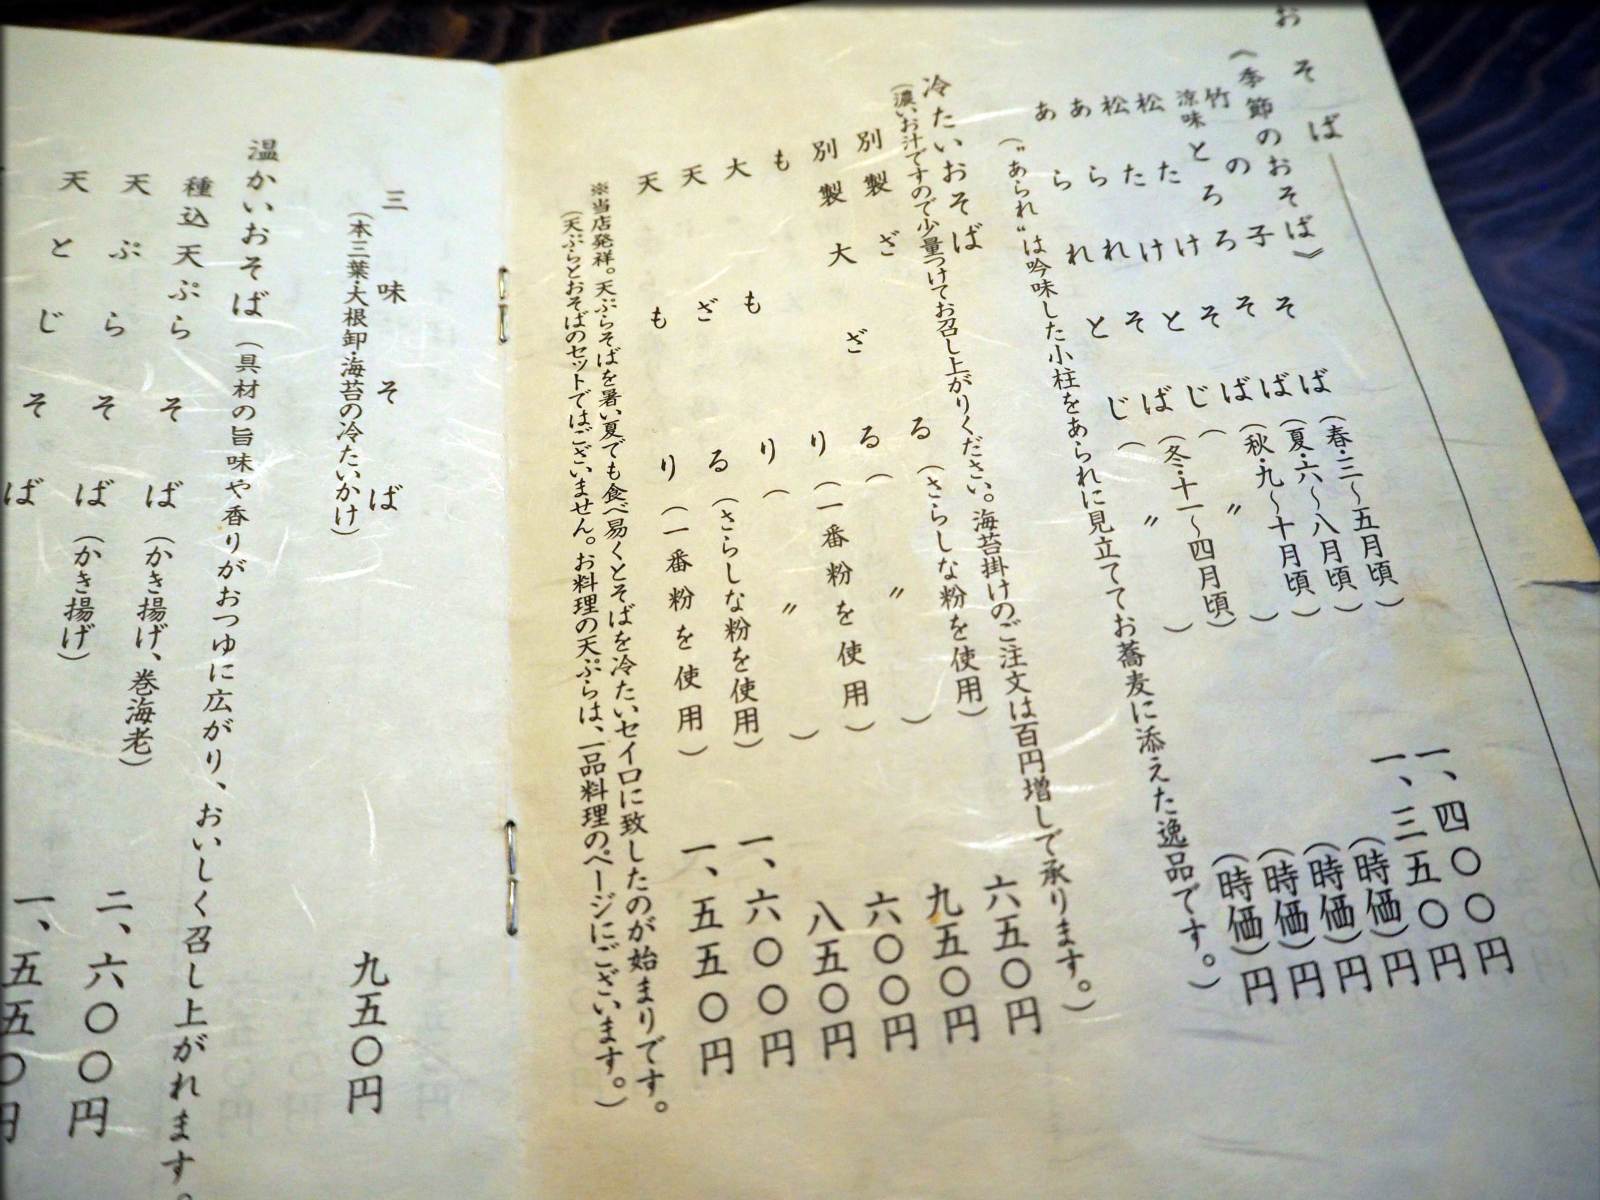 おそば
《季節のおそば》
竹の子そば（春・三〜五月頃）一、四〇〇円
涼味とろろそば（夏・六〜八月頃）一、三五〇円
松たけそば（秋・九〜十月頃）（時価）円
松たけとじ（〃）（時価）円
あられそば（冬・十一〜四月頃）（時価）円
あられとじ（〃）（時価）円
（〝あられ〟は吟味した小柱をあられに見立ててお蕎麦に添えた逸品です。）
冷たいおそば
（濃いお汁ですので少量つけてお召し上がりください。海苔掛けのご注文は百円増しで承ります。）
別製ざる（さらしな粉を使用）六五〇円
別製大ざる（〃）九五〇円
もり（一番粉を使用）六〇〇円
大もり（〃）八五〇円
天ざる（さらしな粉を使用）一、六〇〇円
天もり（一番粉を使用）一、五五〇円
※当店発祥。天ぷらそばを暑い夏でも食べ易くとそばを冷たいセイロに致したのが始まりです。
（天ぷらとおそばのセットではございません。お料理の天ぷらは、一品料理のページにございます。）
三味そば 九五〇円
（本三葉・大根卸・海苔の冷たいかけ）
温かいおそば（具材の旨味や香りがおつゆに広がり、おいしく召し上がれます。
種込天ぷらそば（かき揚げ、巻海老）二、六〇〇円
天ぷらそば（かき揚げ）一、五五〇円
天とじそば